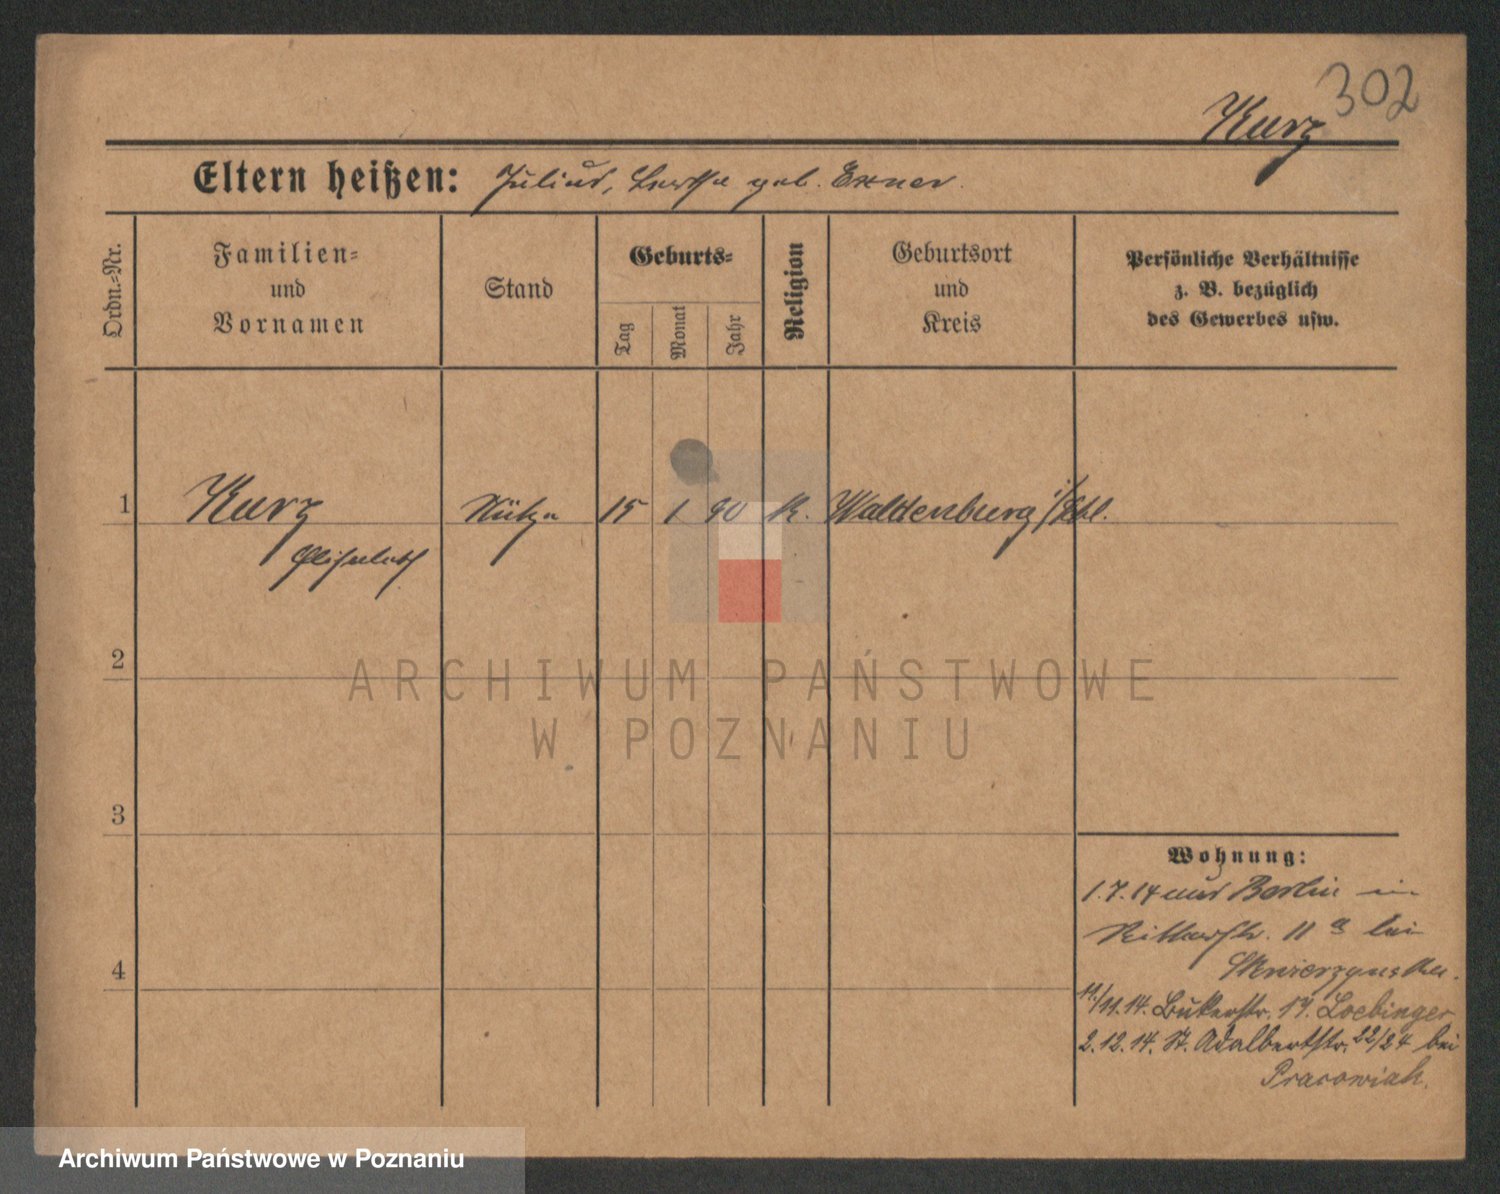 302
Kurz
Eltern heißen: Julius, Bertha geb. Exner.
Ordn.=Nr.
Familien=
und
Vornamen
Stand
Geburts=
Tag
Monat
Jahr
Religion
Geburtsort
und
Kreis
Persönliche Verhältnisse
z. B. bezüglich
des Gewerbes usw.
1
Kurz
Elisabeth
15 1 90 K. Waldenburg i/Schl.
2
3
4
Wohnung:
1.7.14 aus Berlin in
Ritterstr. 11 a bei
11/11.14. Bukerstr. 17. Loebinger
2.12.14. St. Adalbertstr. 22/24 bei
Pracowiak.
ARCHIWUM PAŃSTWOWE
W POZNANIU
Archiwum Państwowe w Poznaniu